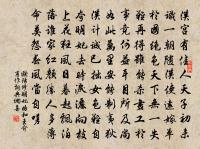 漢宮有佳人天子初未
識一朝隨漢使遠嫁單
于國絕色天下無一失
難再得雖能殺畫工於
事竟何益耳目所及尚
如此萬里安能制夷狄
漢計誠已拙女色難自
誇明妃去時淚灑向枝
上花狂風日暮起飄泊
落誰家紅顏勝人多薄
命莫怨春風當自嗟